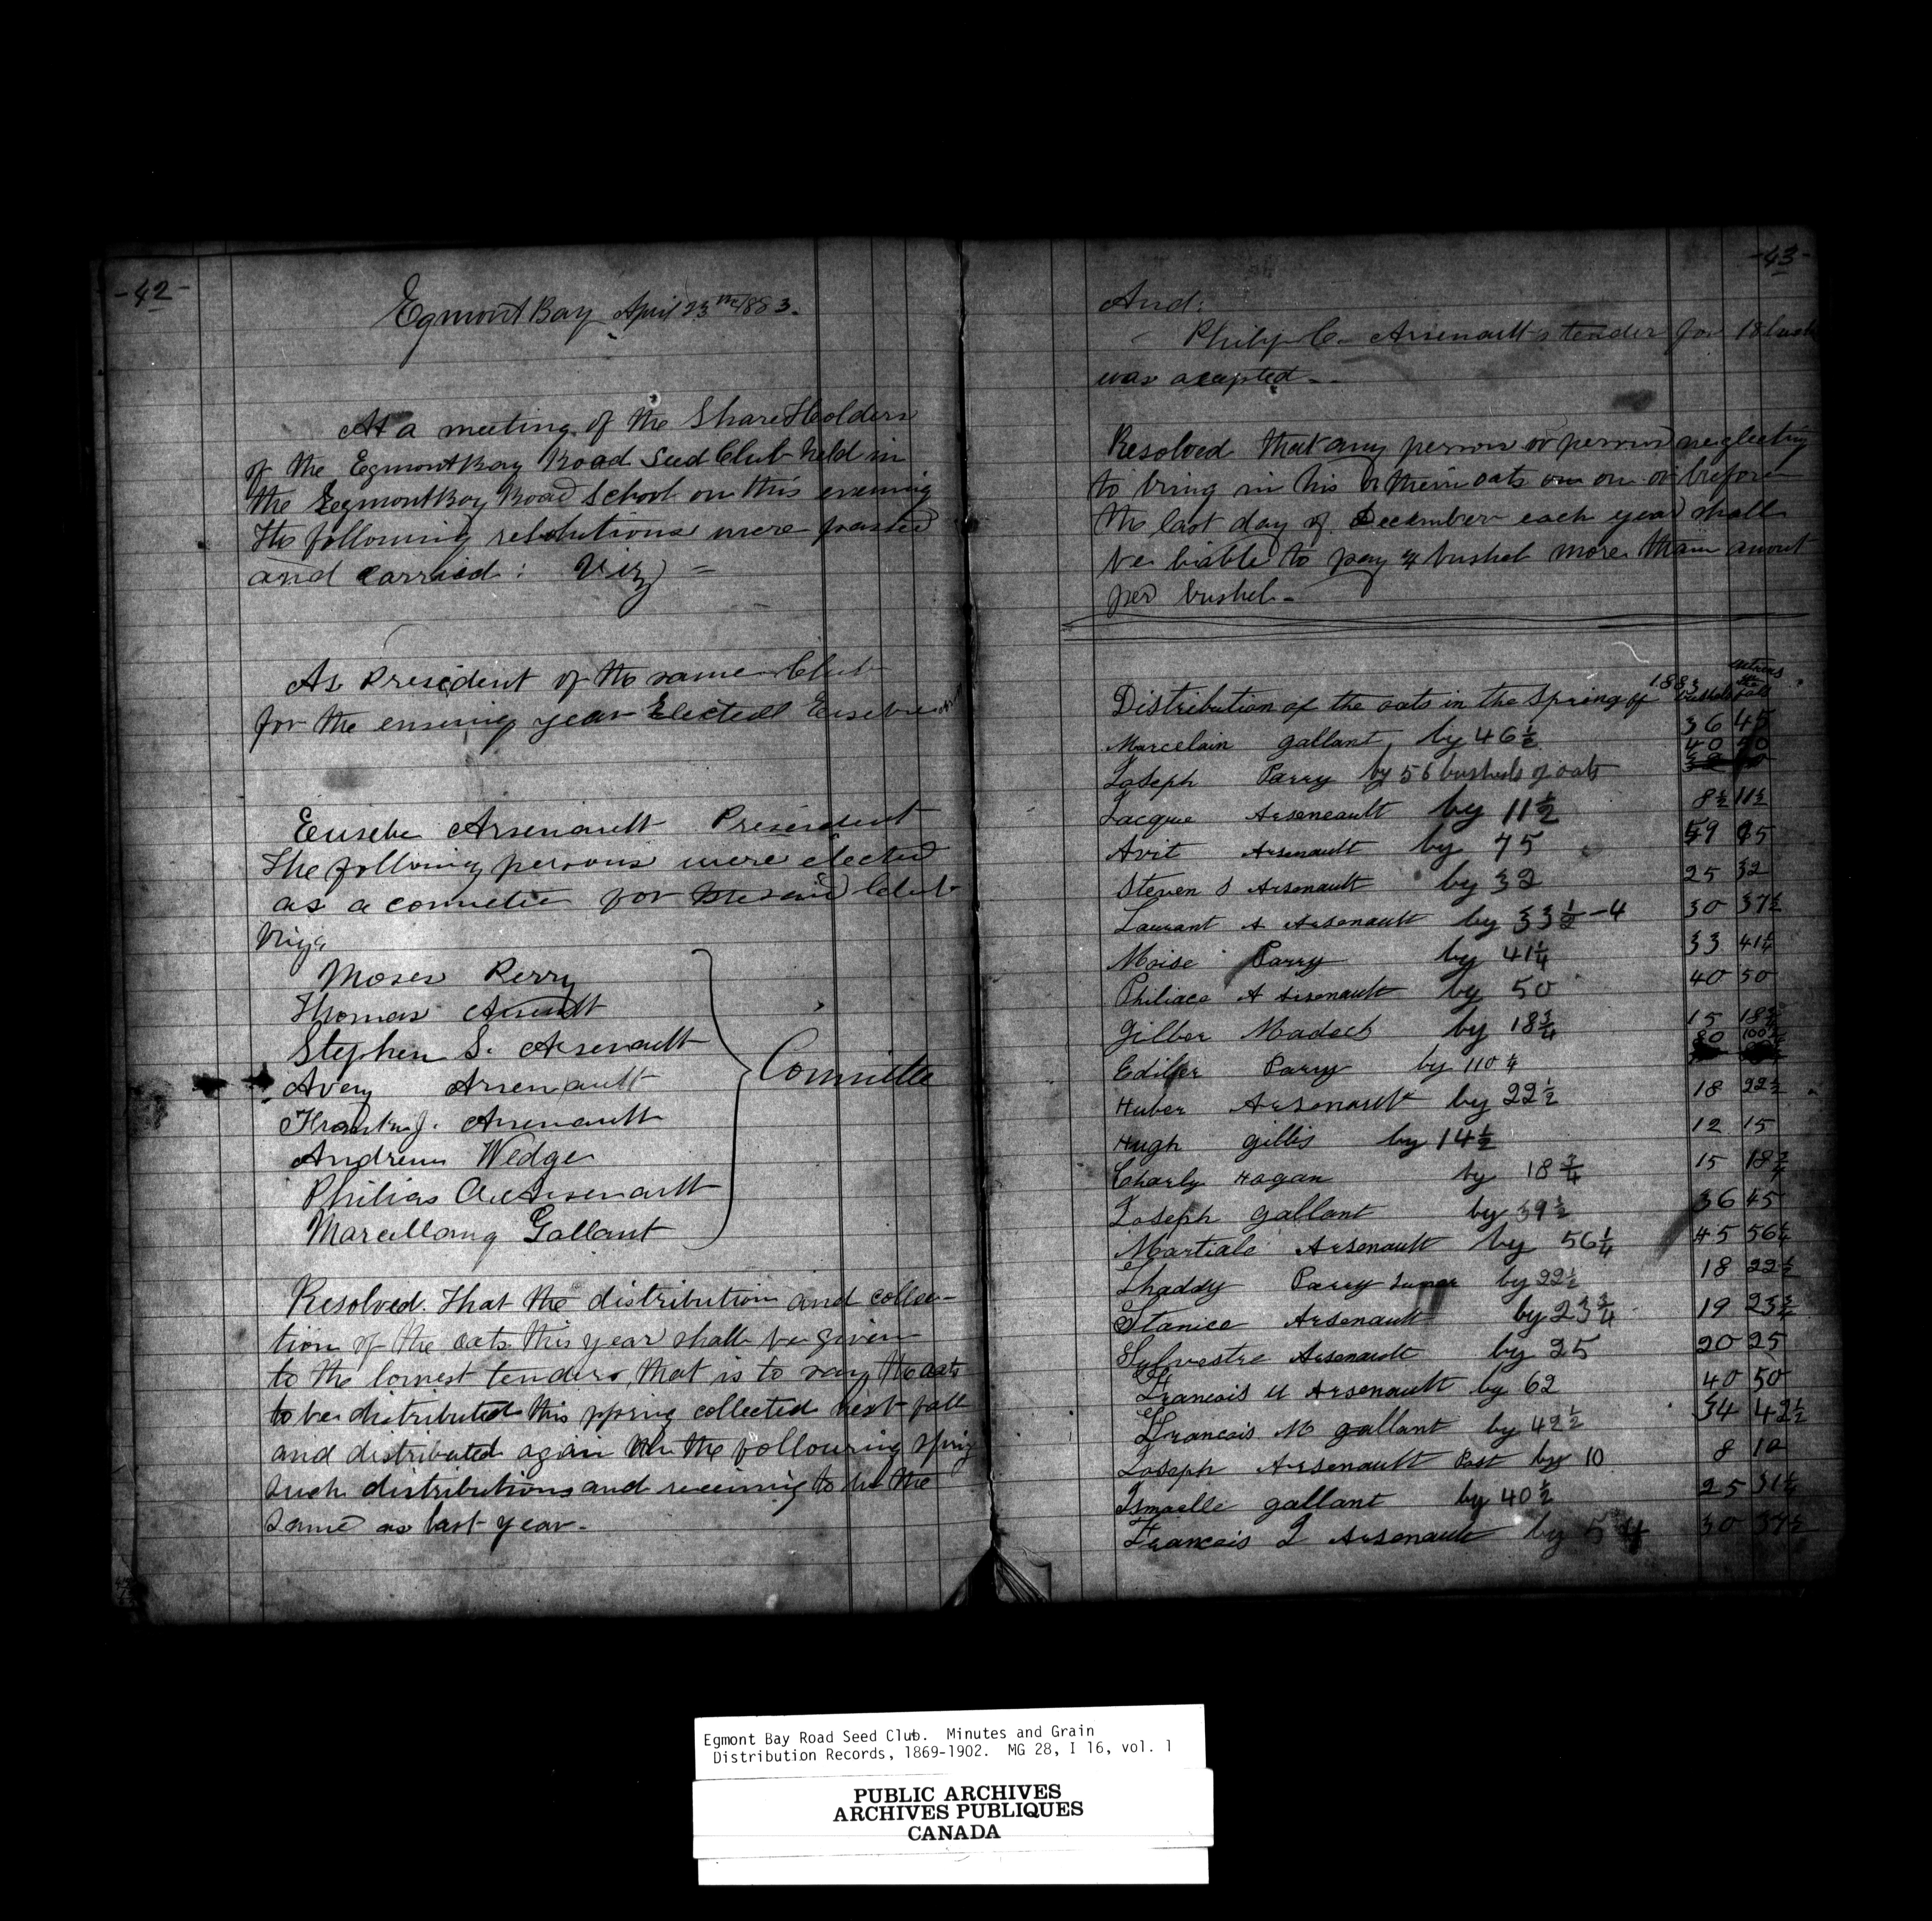 -42-
Egmont Bay April 23rd 1883.
At a meeting of the Share Holders
of the Egmont Bay Road Seed Club held in
the Egmont Bay Road School on this evening
the following resolutions were passed
and carried: Viz =
As President of the same Club
for the ensuing year Elected Eusebe
Eusebe Arsenault President
The following persons were elected
as a comittee for the said Club
Viz
Moses Perry
Thomas
Stephen S. Arsenault
Avery Arsenault
Frank J. Arsenault
Andrew Wedge
Philias A. Arsenault
Marcellang Gallant
Committe
Resolved. That the distribution and collec-
tion of the oats this year shall be given
to the lowest tenders, that is to say, the oats
to be distributed this spring collected next fall
and distributed again the following spring
such distributions and receiving to be the
same as last year.
-43-
And:
Philip C. Arsenault's tender for 18 bush
was acepted --
Resolved that any person or persons neglecting
to bring in his or their oats on or before
the last day of December each year shall
be liable to pay 4 bushel more than amout
per bushel -
Distribution of the oats in the Spring of 1883 bushels fall
Marcelain gallant, by 46½ 36 45
Joseph Parry by 56 bushels of oats 40 50
Jacque Arseneault by 11½ 8½ 11½
Avit Arsenault by 75 59 75
Steven S Arsenault by 32 25 32
Laurant A Arsenault by 33½ -4 30 37½
Moise Parry by 41¼ 33 41¼
Philiace A Arsenault by 50 40 50
Gilber Madock by 18¾ 15 18¾
Parry by 110¼ 80 100
Huber Arsenault by 22½ 18 22½
Hugh gillis by 14½ 12 15
Charly Hogan by 18¾ 15 18¾
Joseph gallant by 39½ 36 45
Martiale Arsenault by 56¼ 45 56¼
Thaddy Parry by 22½ 18 22½
Stanice Arsenault by 23¾ 19 23¾
Sylvestre Arsenault by 25 20 25
Francois U Arsenault by 62 40 50
Francois M gallant by 42½ 34 42½
Joseph Arsenault Post by 10 8 10
Ismaelle gallant by 40½ 25 31¼
Francois J Arsenault by 54 30 37½
Egmont Bay Road Seed Club. Minutes and Grain
Distribution Records, 1869-1902. MG 28, I 16, vol. 1
PUBLIC ARCHIVES
ARCHIVES PUBLIQUES
CANADA